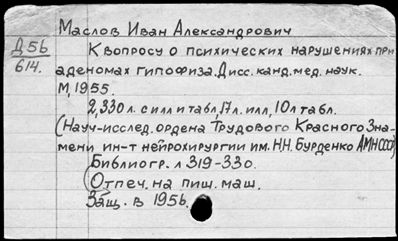 Маслов Иван Александрович
Д56
614.
К вопросу о психических нарушениях при
аденомах гипофиза. Дисс. канд. мед. наук.
М, 1955.
2,330 л. с илл и табл, 17 л. илл, 10 л табл.
(Науч-исслед. ордена Трудового Красного Зна-
мени ин-т нейрохирургии им. Н.Н. Бурденко АМН СССР)
Библиогр. л 319-330.
Отпеч. на пиш. маш.
Защ. в 1956.